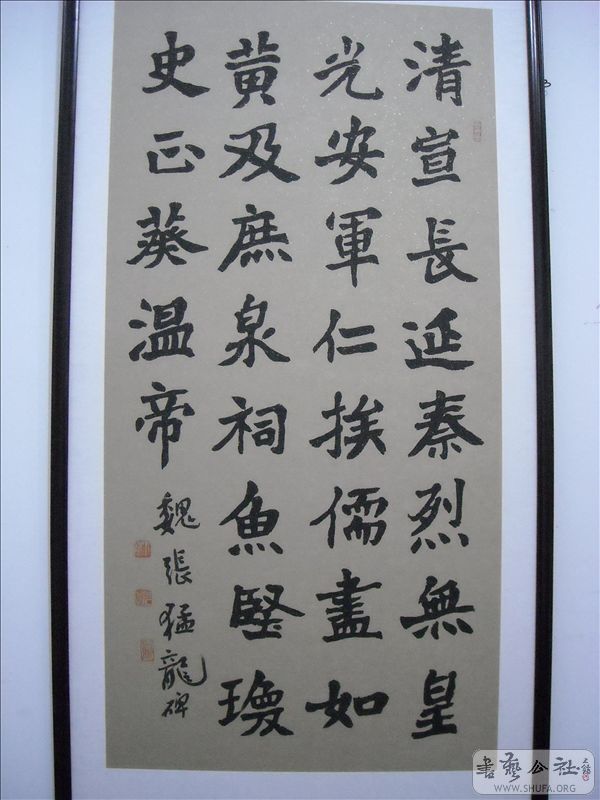 清宣長延秦烈無皇
光安軍仁挨儒盡如
黃及庶泉祠魚堅瓊
史正葵温帝
魏張猛龍碑
書藝公社
WWW.SHUFA.ORG